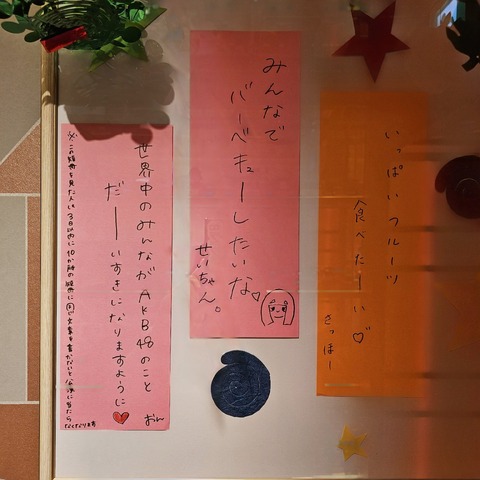 いっぱいフルーツ
食べたーい♡
さっほー
みんなで
バーベキューしたいな♡
せいちゃん。
世界中のみんながAKB48のこと
だーいすきになりますように♥
おん
※この短冊を見た人は3日以内に10か所の短冊に同じ文章を書かないと公演に当たら
なくなります